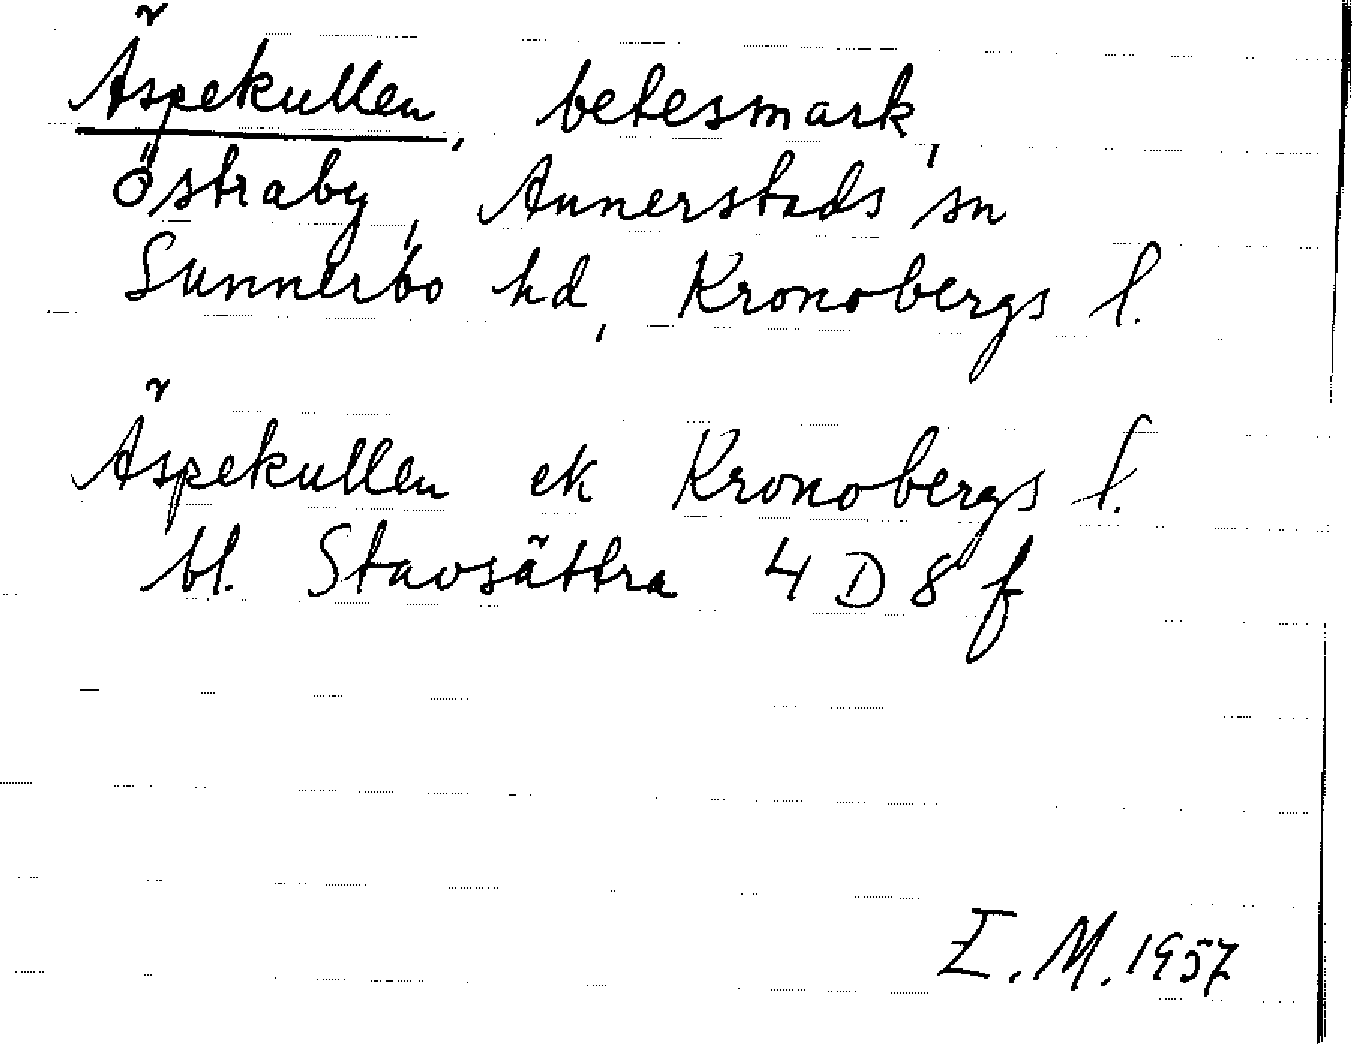 Äspekullen, betesmark,
Östraby, Annerstads sn
Sunnerbo hd, Kronobergs l.
Äspekullen ek Kronobergs l.
bl. Stavsättra 4 D 8 f
E. M. 1957